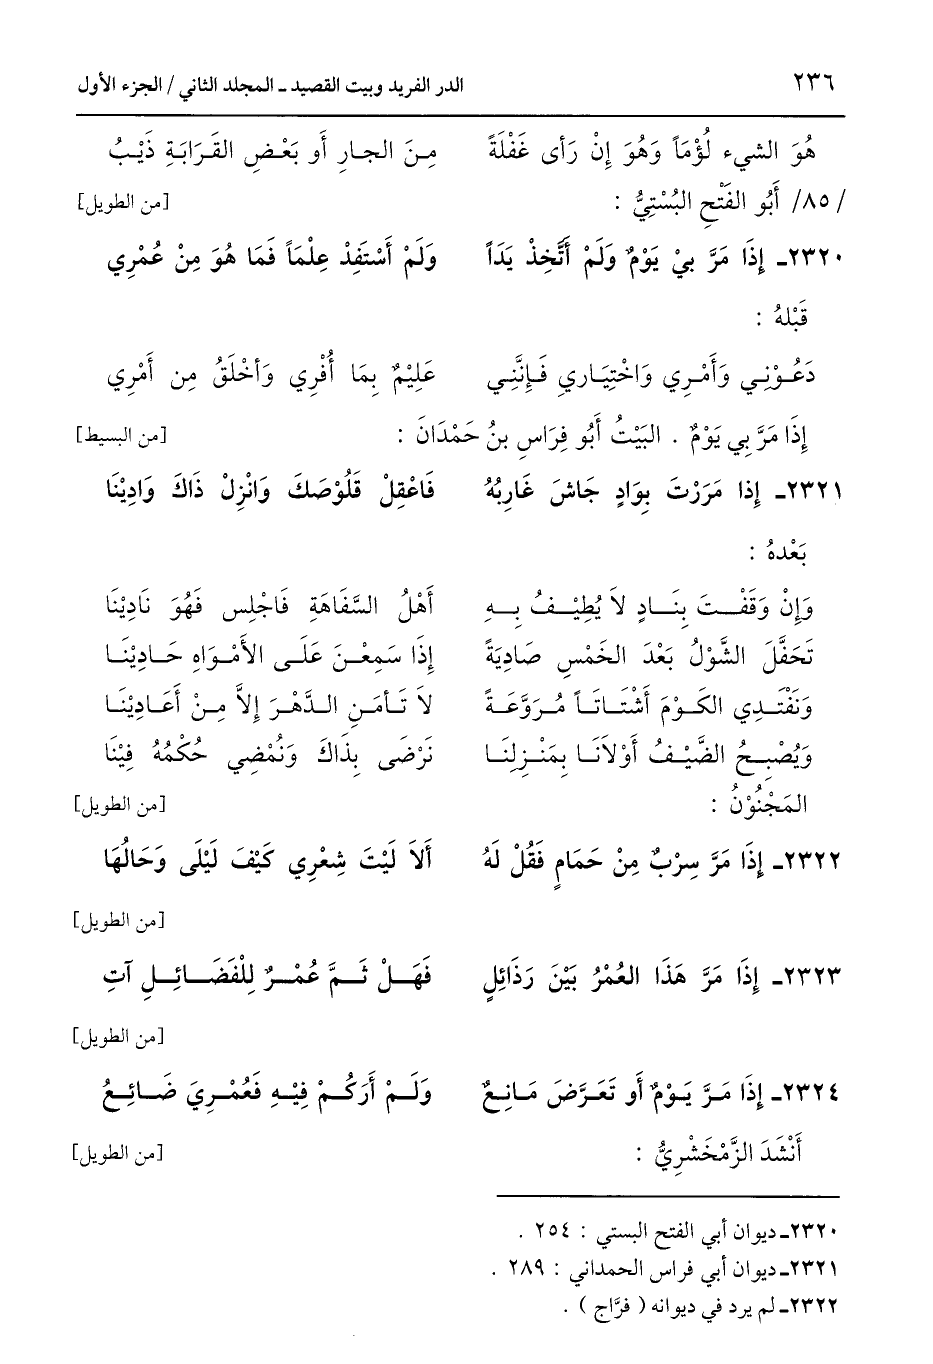 ٢٣٦ الدر الفريد وبيت القصيد ـ المجلد الثاني / الجزء الأول
هُوَ الشيء لُؤْمَاً وَهُوَ إِنْ رَأى غَفْلَةً مِـنَ الجـارِ أَو بَعْـضِ القَـرَابَـةِ ذَيْـبُ
/ ٨٥/ أَبُو الفَتْحِ البُسْتِيُّ : [من الطويل]
٢٣٢٠ـ إِذَا مَرَّ بيْ يَوْمٌ وَلَمْ أَتَّخِذْ يَدَاً وَلَمْ أَسْتَفِدْ عِلْمَاً فَمَا هُوَ مِنْ عُمْرِي
قَبْلهُ :
دَعُـوْنِـي وَأَمْـرِي وَاخْتِيَـاري فَـإِنَّنِـي عَلِيْمٌ بِمَا أُفْرِي وَأخْلَقُ مِن أَمْرِي
إِذَا مَرَّ بِي يَوْمٌ . البَيْتُ أَبُو فِرَاسِ بنُ حَمْدَانَ : [من البسيط]
٢٣٢١ـ إِذا مَرَرْتَ بِوَادٍ جَاشَ غَارِبُهُ فَاعْقِلْ قَلُوْصَكَ وَانْزِلْ ذَاكَ وَادِيْنَا
بَعْدهُ :
وَإِنْ وَقَفْـــتَ بِنَـــادٍ لاَ يُطِيْـــفُ بِـــهِ أَهْلُ السَّفَاهَةِ فَاجْلِس فَهُوَ نَادِيْنَا
تَحَفَّلَ الشَّوْلُ بَعْدَ الخَمْسِ صَادِيَةً إِذَا سَمِعْـنَ عَلَـى الأَمْـوَاهِ حَـادِيْنَـا
وَنَفْتَـدِي الكَـوْمَ أَشْتَـاتَـاً مُـرَوَّعَـةً لاَ تَـأمَـنِ الـدَّهْـرَ إِلاَّ مِـنْ أَعَـادِيْنَـا
وَيُصْبِـحُ الضَّيْـفُ أَوْلاَنَـا بِمَنْـزِلِنَـا نَرْضَى بِذَاكَ وَنُمْضِي حُكْمُهُ فِيْنَا
المَجْنُوْنُ : [من الطويل]
٢٣٢٢ـ إِذَا مَرَّ سِرْبٌ مِنْ حَمَامٍ فَقُلْ لَهُ أَلاَ لَيْتَ شِعْرِي كَيْفَ لَيْلَى وَحَالُهَا
[من الطويل]
٢٣٢٣ـ إِذَا مَرَّ هَذَا العُمْرُ بَيْنَ رَذَائِلٍ فَهَـــلْ ثَـــمَّ عُمْـــرٌ لِلْفَضَـــائِـــلِ آتِ
[من الطويل]
٢٣٢٤ـ إِذَا مَـرَّ يَـوْمٌ أَو تَعَـرَّضَ مَـانِـعٌ وَلَـــمْ أَرَكُـــمْ فِيْـــهِ فَعُمْـــرِيَ ضَـــائِـــعُ
أَنْشَدَ الزَّمْخَشْرِيُّ : [من الطويل]
٢٣٢٠ـ ديوان أبي الفتح البستي : ٢٥٤ .
٢٣٢١ـ ديوان أبي فراس الحمداني : ٢٨٩ .
٢٣٢٢ـ لم يرد في ديوانه ( فرَّاج ) .